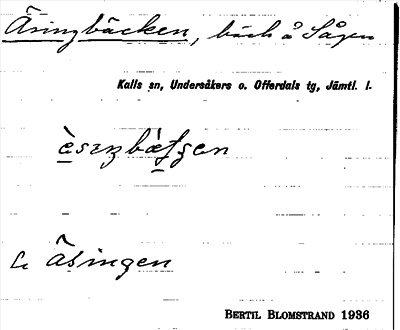 Äsingbäcken, bäck å Sågen
Kalls sn, Undersåkers o. Offerdals tg, Jämtl. l.
Äsingen
BERTIL BLOMSTRAND 1936